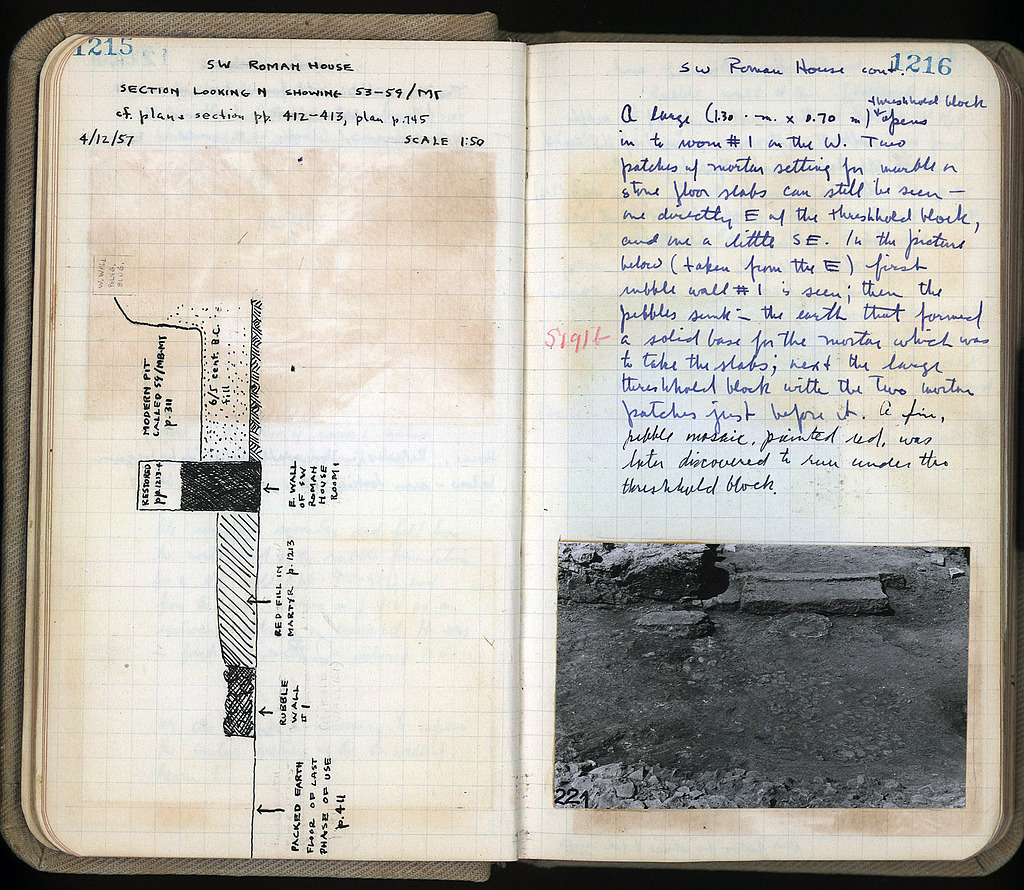 1215
SW ROMAN HOUSE
SECTION LOOKING N SHOWING 53-59/MT
cf. plan & section pp. 412-413, plan p. 745
4/12/57 SCALE 1:50
W. WALL
BLDG.
MODERN PIT
CALLED 59/MB-MT
p. 311
6/5 cent. B.C.
fill
RESTORED
pp. 1213-4
E. WALL
OF SW
ROMAN
HOUSE
ROOM 1
RED FILL IN
MARTYR p. 1213
RUBBLE
WALL
# 1
PACKED EARTH
FLOOR OF LAST
PHASE OF USE
p. 411
1216
SW Roman House cont.
threshhold block
A large (1.30 m. x 0.70 m) opens
in to room #1 on the W. Two
patches of mortar setting for marble or
stone floor slabs can still be seen —
one directly E of the threshhold block,
and one a little SE. In the picture
below (taken from the E) first
rubble wall #1 is seen; then the
pebbles sunk in the earth that formed
a solid base for the mortar which was
to take the slabs; next the large
threshhold block with the two mortar
patches just before it. A fine,
pebble mosaic, painted red, was
later discovered to run under the
threshhold block.
221